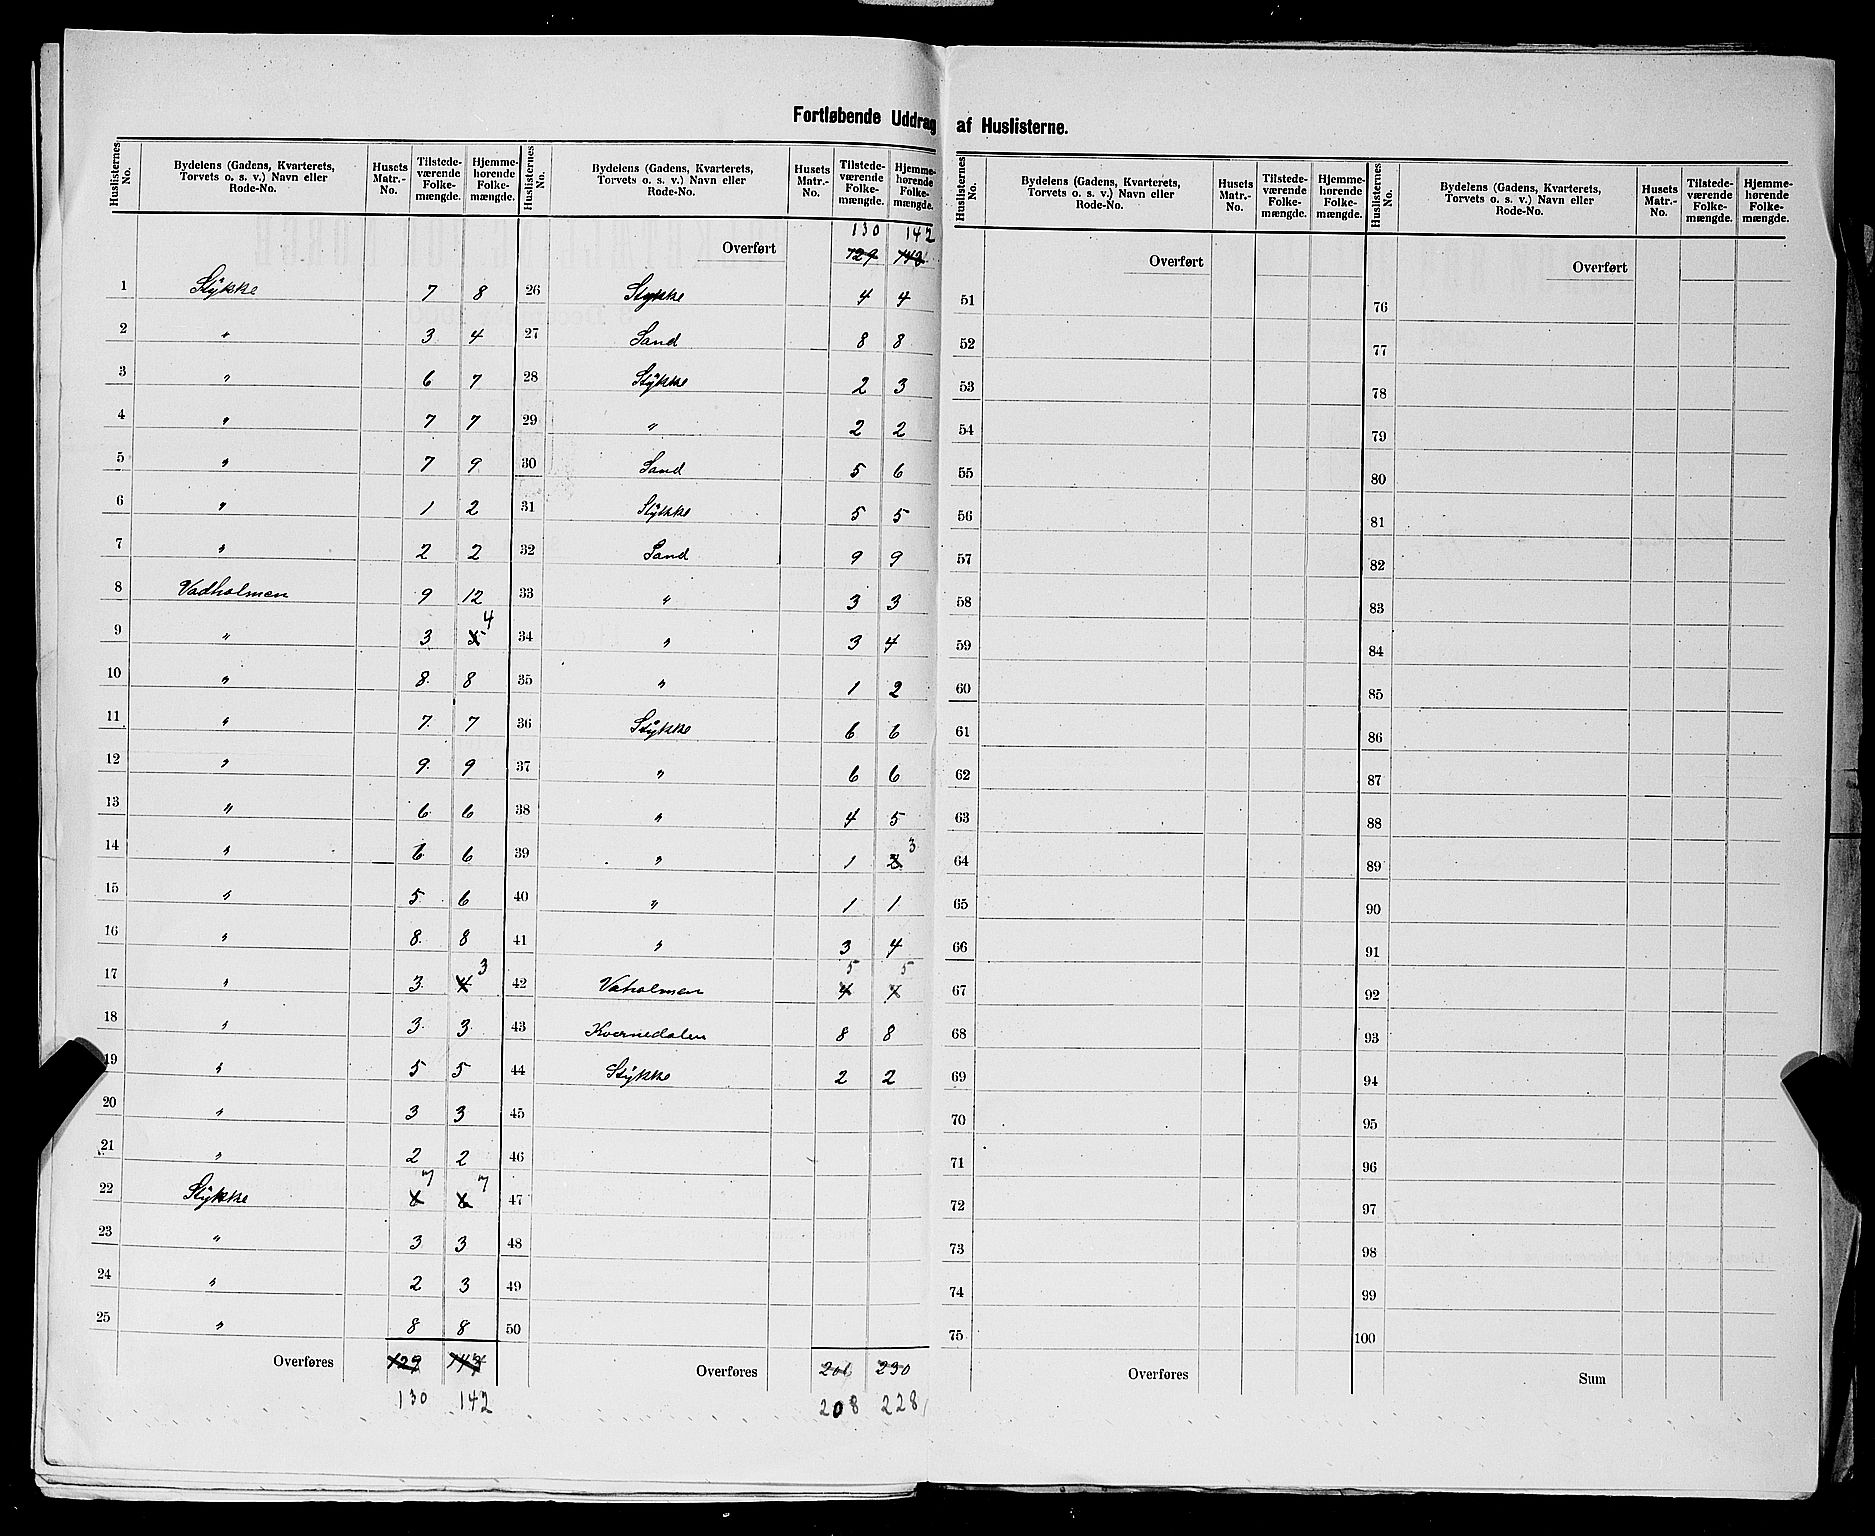 Fortløbende Uddrag af Huslisterne.
Huslisternes No. | Bydelens (Gadens, Kvarterets, Torvets o. s. v.) Navn eller Rode-No. | Husets Matr.-No. | Tilstedeværende Folkemængde. | Hjemmehørende Folkemængde.
1 Stÿkke 7 8
2 " 3 4
3 " 6 7
4 " 7 7
5 " 7 9
6 " 1 2
7 " 2 2
8 Vadholmen 9 12
9 " 3 5 4
10 " 8 8
11 " 7 7
12 " 9 9
13 " 6 6
14 " 6 6
15 " 5 6
16 " 8 8
17 " 3 4 3
18 " 3 3
19 " 5 5
20 " 3 3
21 " 2 2
22 Stÿkke 7 7
23 " 3 3
24 " 2 3
25 " 8 8
Overføres 129
130 142
Huslisternes No. | Bydelens (Gadens, Kvarterets, Torvets o. s. v.) Navn eller Rode-No. | Husets Matr.-No. | Tilstedeværende Folkemængde. | Hjemmehørende Folkemængde.
130 142
Overført 129
26 Stykke 4 4
27 Sand 8 8
28 Stÿkke 2 3
29 " 2 2
30 Sand 5 6
31 Stÿkke 5 5
32 Sand 9 9
33 " 3 3
34 " 3 4
35 " 1 2
36 Stÿkke 6 6
37 " 6 6
38 " 4 5
39 " 1 2 3
40 " 1 1
41 " 3 4
42 Vaholmen 4 5 4 5
43 Kvernedalen 8 8
44 Stÿkke 2 2
45
46
47
48
49
50
Overføres 206 230
208 228
Huslisternes No. | Bydelens (Gadens, Kvarterets, Torvets o. s. v.) Navn eller Rode-No. | Husets Matr.-No. | Tilstedeværende Folkemængde. | Hjemmehørende Folkemængde.
Overført
51
52
53
54
55
56
57
58
59
60
61
62
63
64
65
66
67
68
69
70
71
72
73
74
75
Overføres
Huslisternes No. | Bydelens (Gadens, Kvarterets, Torvets o. s. v.) Navn eller Rode-No. | Husets Matr.-No. | Tilstedeværende Folkemængde. | Hjemmehørende Folkemængde.
Overført
76
77
78
79
80
81
82
83
84
85
86
87
88
89
90
91
92
93
94
95
96
97
98
99
100
Sum